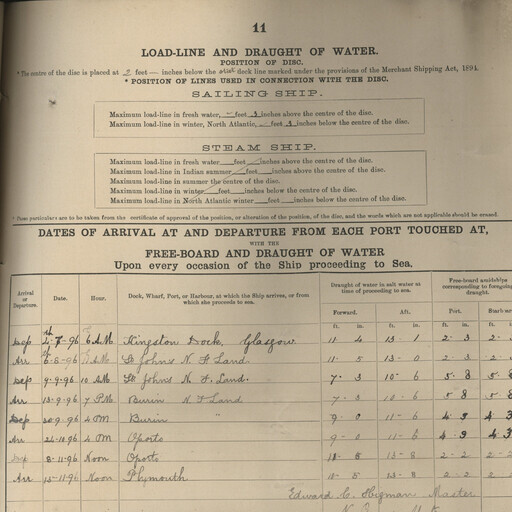 11
LOAD-LINE AND DRAUGHT OF WATER.
POSITION OF DISC.
* The centre of the disc is placed at 2 feet — inches below the deck line marked under the provisions of the Merchant Shipping Act, 1894.
* POSITION OF LINES USED IN CONNECTION WITH THE DISC.
SAILING SHIP.
Maximum load-line in fresh water, — feet 3 inches above the centre of the disc.
Maximum load-line in winter, North Atlantic, — feet 3 inches below the centre of the disc.
STEAM SHIP.
Maximum load-line in fresh water feet inches above the centre of the disc.
Maximum load-line in Indian summer feet inches above the centre of the disc.
Maximum load-line in summer the centre of the disc.
Maximum load-line in winter feet inches below the centre of the disc.
Maximum load-line in North Atlantic winter feet inches below the centre of the disc.
* These particulars are to be taken from the certificate of approval of the position, or alteration of the position, of the disc, and the words which are not applicable should be erased.
DATES OF ARRIVAL AT AND DEPARTURE FROM EACH PORT TOUCHED AT,
WITH THE
FREE-BOARD AND DRAUGHT OF WATER
Upon every occasion of the Ship proceeding to Sea.
Arrival or Departure. Date. Hour. Dock, Wharf, Port, or Harbour, at which the Ship arrives, or from which she proceeds to sea. Draught of water in salt water at time of proceeding to sea. Free-board amidships corresponding to foregoing draught.
Forward. Aft. Port.
ft. in. ft. in. ft. in. ft. in.
Dep 6 AM Kingston Dock, Glasgow 11 4 13 1 2 3 2
Arr 6-8-96 AM St Johns N F Land 11 5 13 0 2 3 2
Dep 9-9-96 10 AM St Johns N. F Land. 7 3 10 6 5 8 5 8
Arr 13-9-96 7 PM Burin N F Land 7 3 10 6 5 8 5 8
Dep 30-9-96 4 PM Burin " 9 0 11 6 4 3 4 3
Arr 24-10-96 4 PM Oporto 9 0 11 6 4 3 4 3
Dep 8-11-96 Noon Oporto 13 8 2 2 2
Arr 15-11-96 Noon Plymouth 11 5 13 8 2 2 2
Edward C. Master